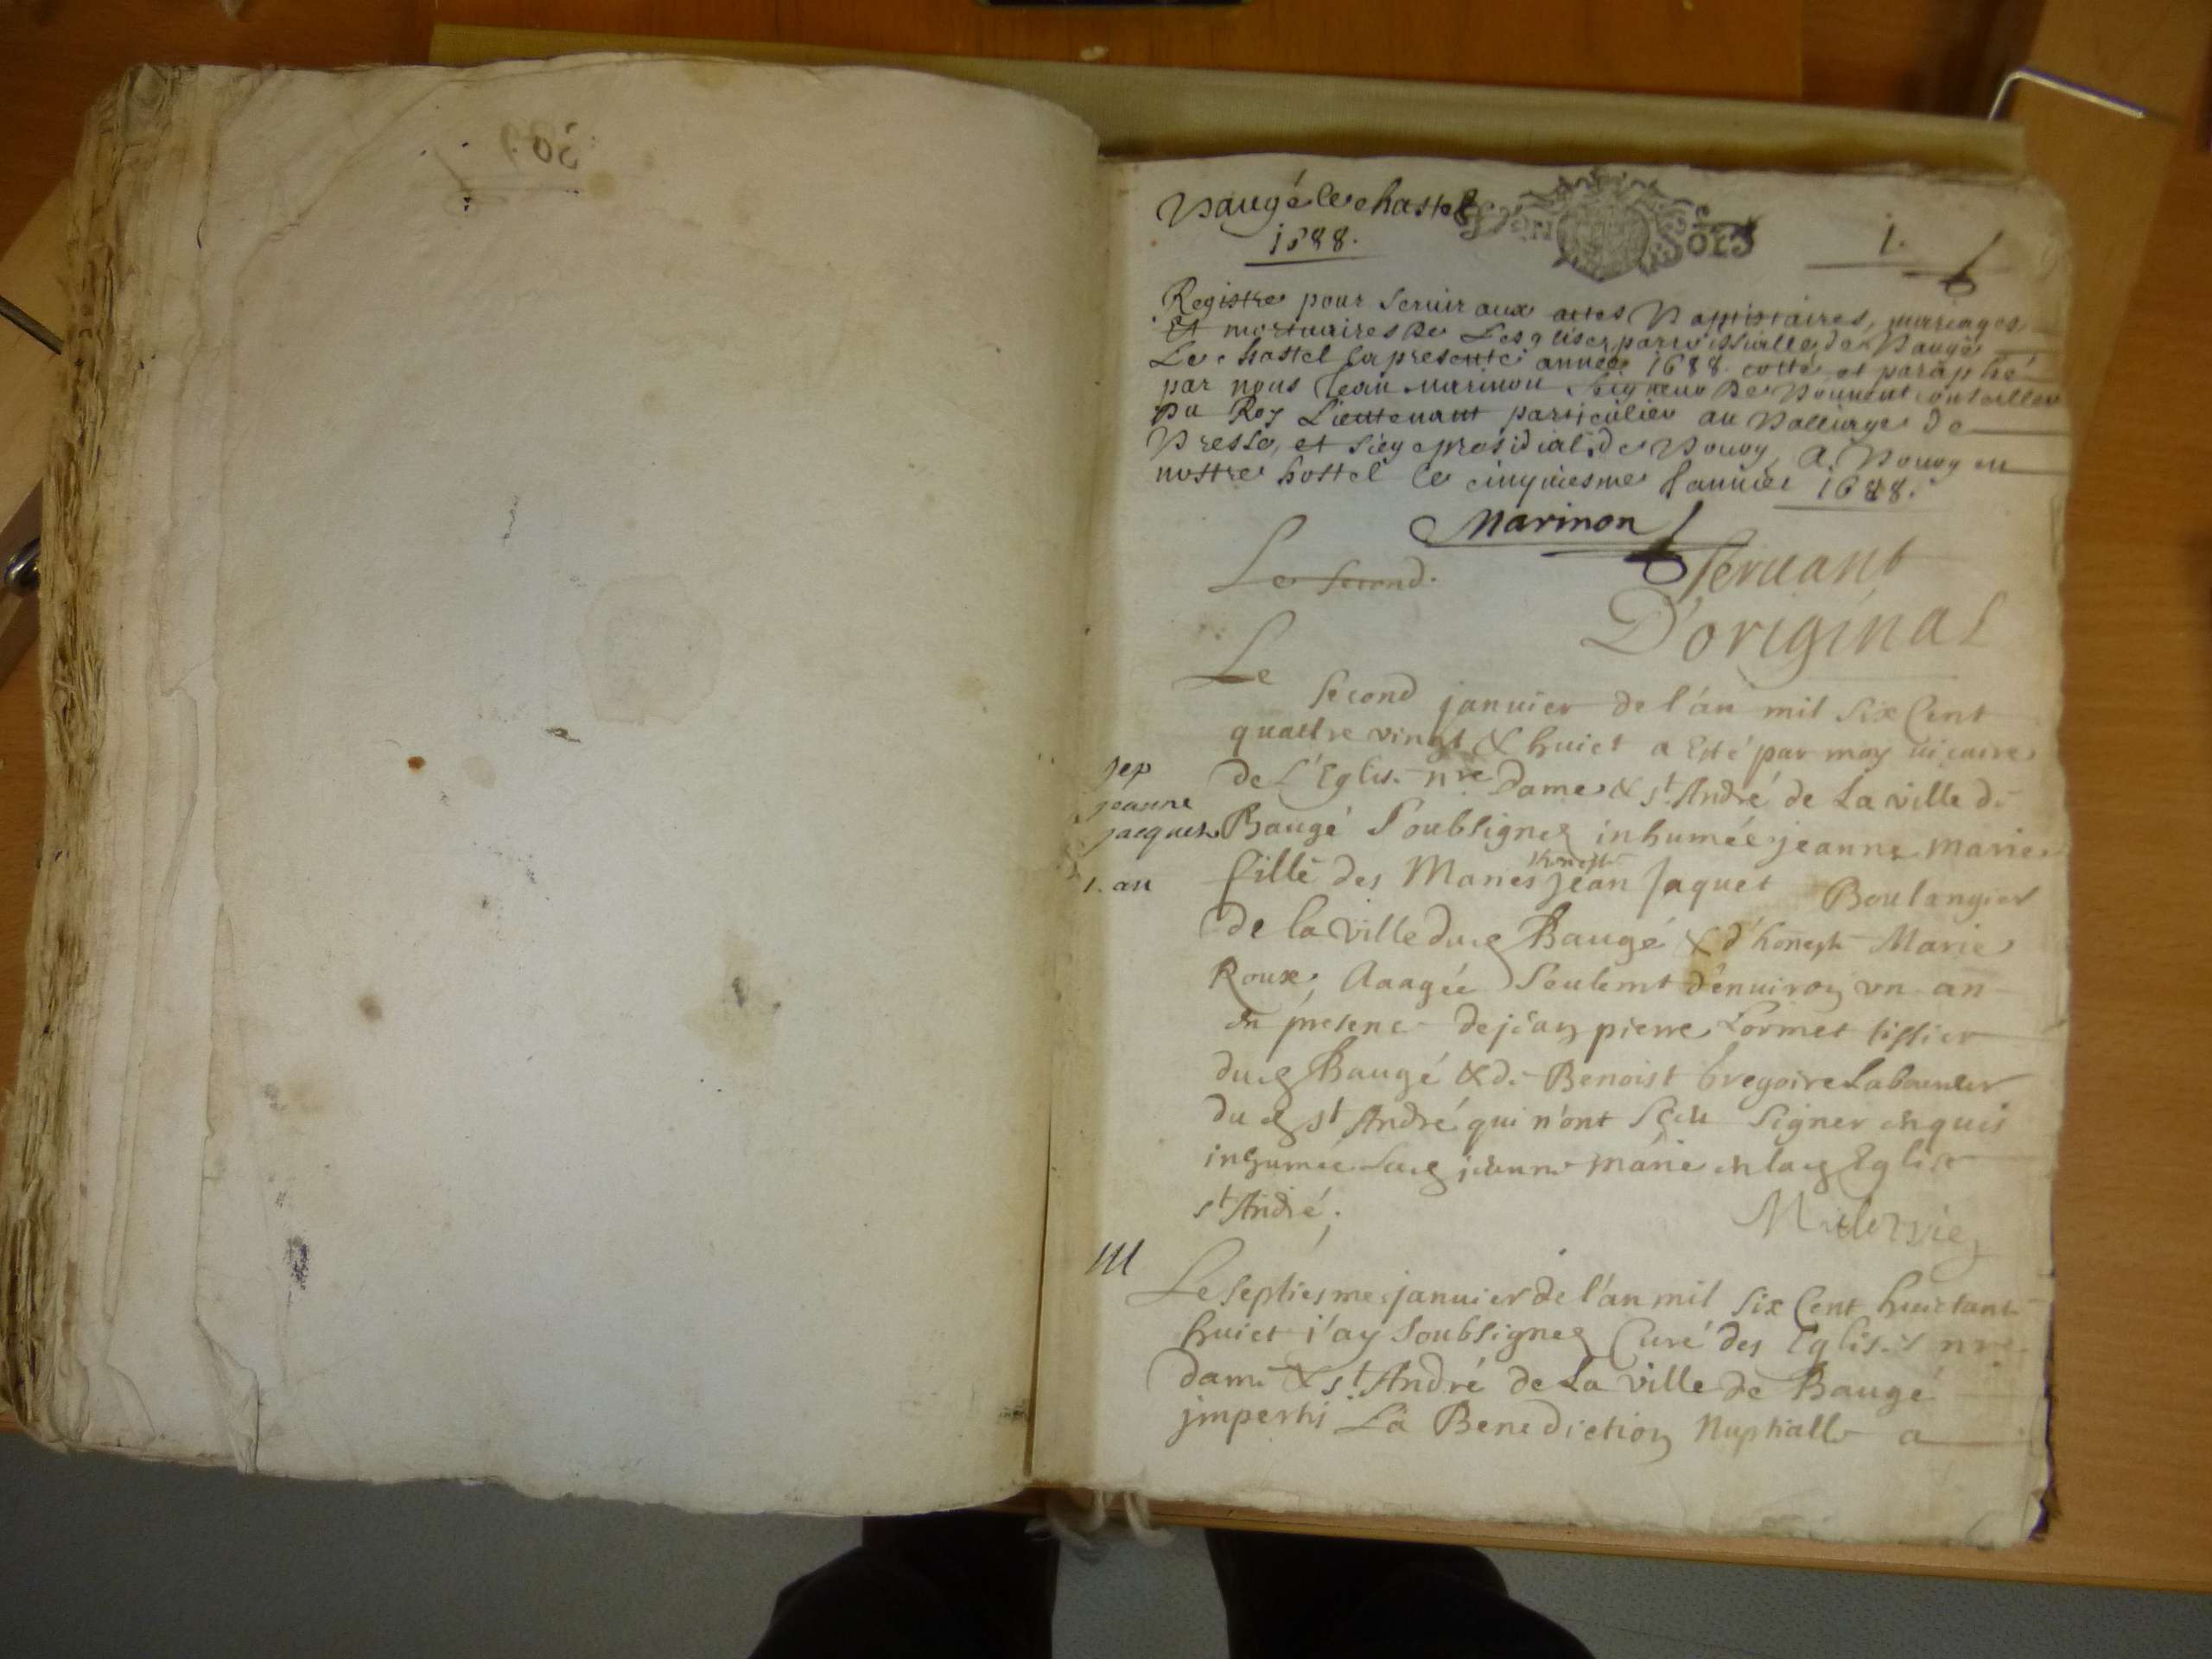 Baugé le chastel
1688.
GEN
SOLS
1.
Registre pour servir aux actes Baptistaires, mariages
Et mortuaires de Lesglise parroissialle de Baugé
Le chastel la presente année 1688 cotté et paraphé
par nous Jean Marinon Seigneur de conseiller
du Roy Lieutenant particulier au Balliage de
Bresse, et siege presidial de Bourg, A Bourg en
nostre hostel le cinquiesme Januier 1688.
Marinon
Le second.
Seruant
D'original
Le
second januier de l'an mil six Cent
quattre vingt & huict a esté par moy vicaire
de L'Eglise nre Dame & st André de La ville de
Baugé soubsigné inhumée jeanne marie
fille des Mariés honeste jean Jaquet Boulangier
de la ville dud Baugé & d'honeste Marie
Roux, Aaagée seulemt d'enuiron vn an
en presence de jean pierre Cormet tissier
dud Baugé & de Benoist Gregoire Laboureur
dud st André qui n'ont sceu signer enquis
inhumée lad jeanne marie en lad Eglise
st André.
sep
jeanne
jacquet
1. an
M
Le septiesme januier de l'an mil six Cent huictante
huict j'ay soubsigné Curé des Eglises nre
dame & st André de La ville de Baugé
jmparti La Benediction Nuptialle a